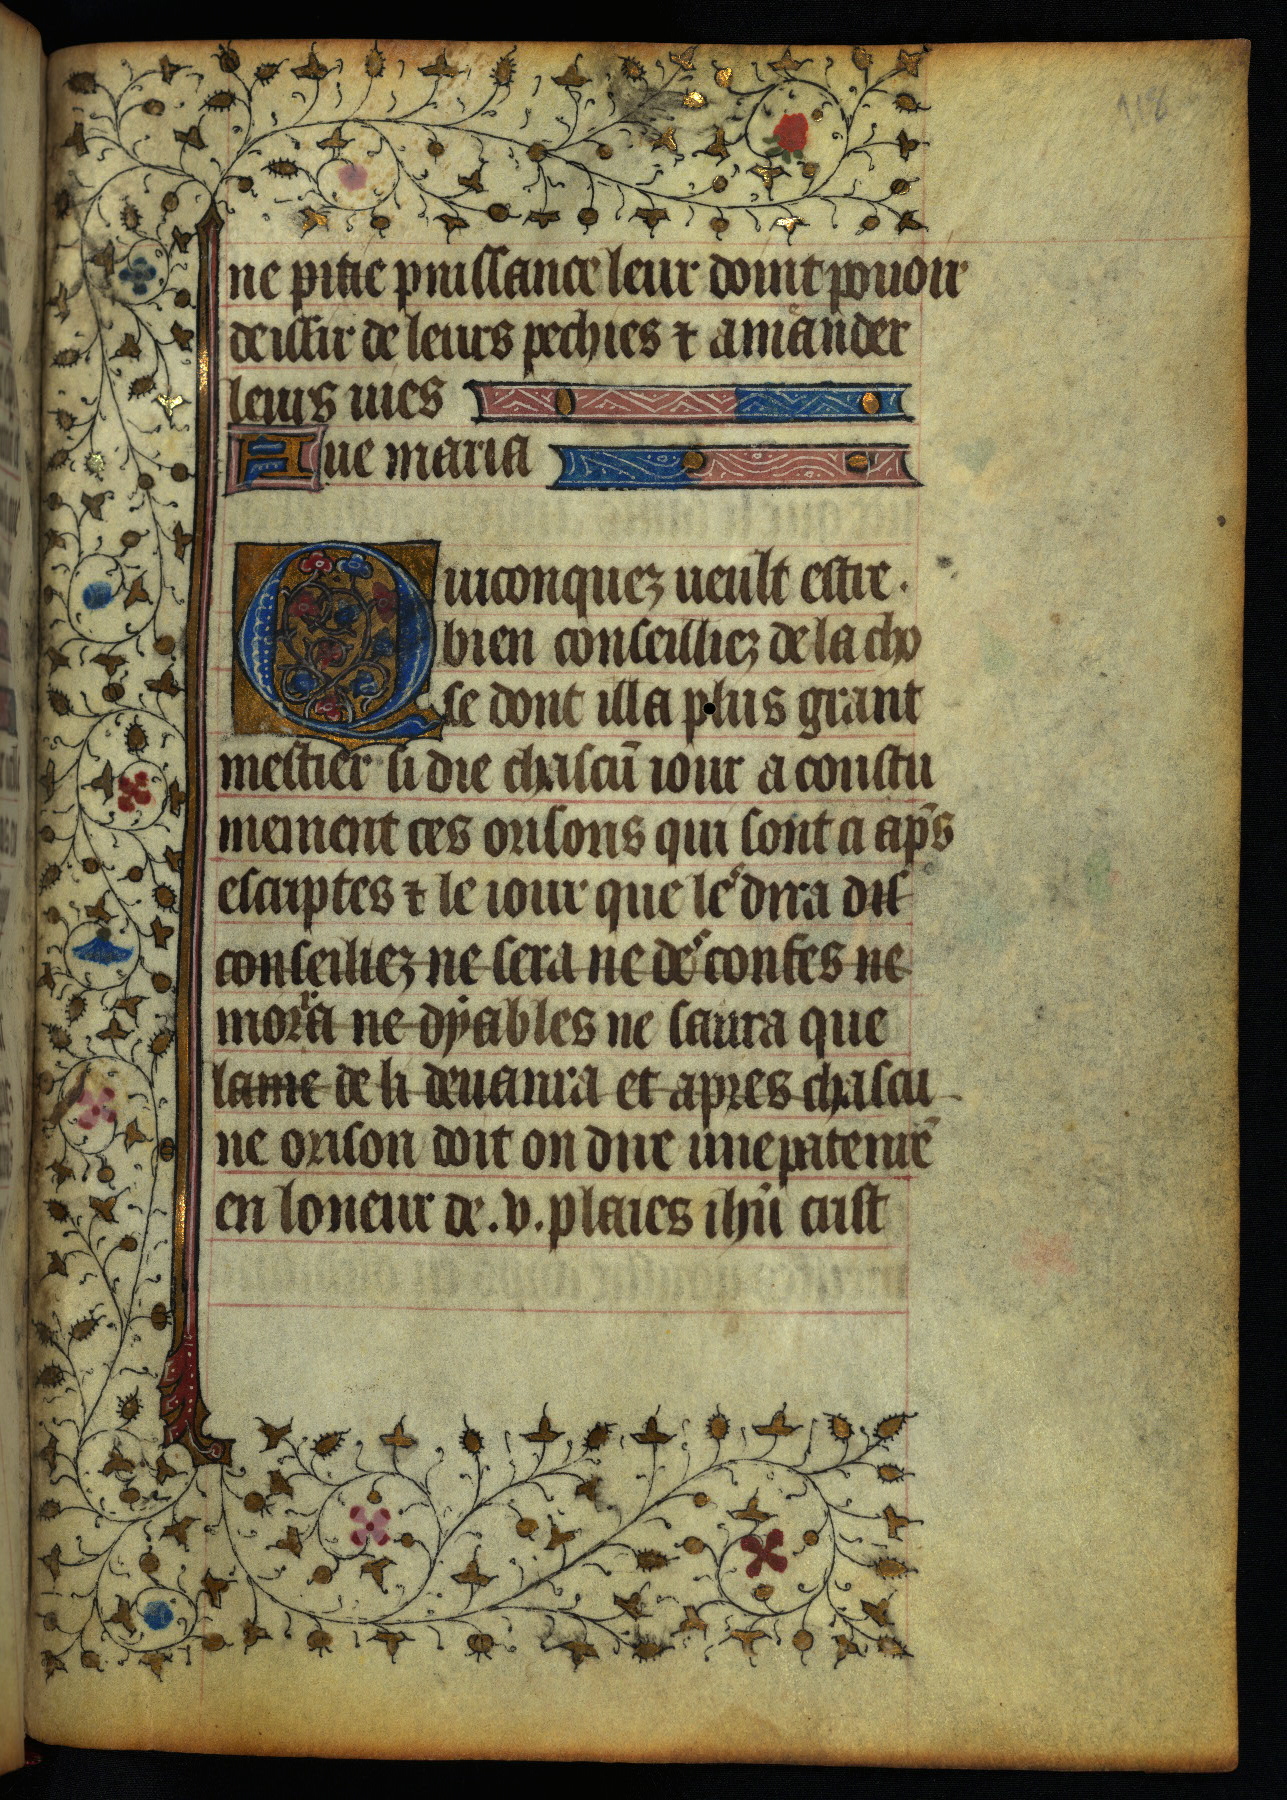 118
ne pitie puissance leur doint pouoir
de issir de leurs pechies ⁊ amander
leurs uies
Aue maria
Quiconquez ueult estre.
bien conseilliez de la cho
se dont il la plus grant
mestier si die chascū iour a coustu
mement ces orisons qui sont ci ap̄s
escriptes ⁊ le iour que les dira des
conseiliez ne sera ne des confes ne
morra ne dyables ne saura que
lame de li deuanra et apres chascu
ne orison doit on dire une patenrē
en loneur de .v. plaies ihū crist